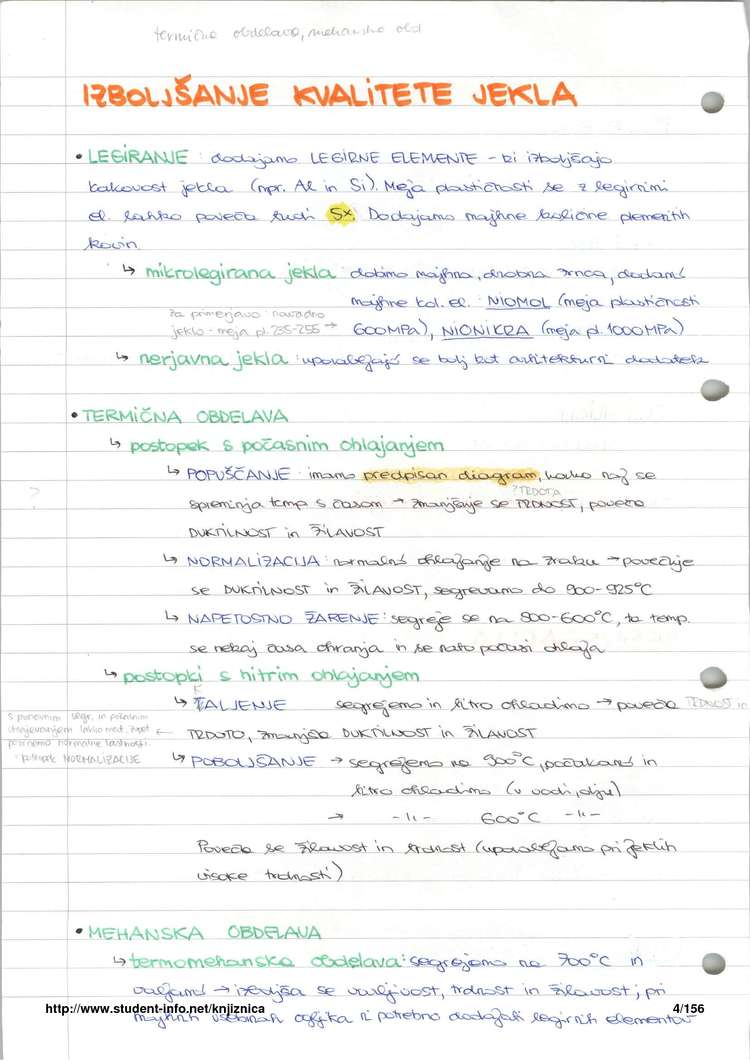 termična obdelava, mehanska obd
IZBOLJŠANJE KVALITETE JEKLA
• LEGIRANJE : dodajamo LEGIRNE ELEMENTE - ki izboljšajo
kakovost jekla (npr. Al in Si). Meja plastičnosti se z legirnimi
el. lahko poveča tudi 5x. Dodajamo majhne količine plemenitih
kovin.
↳ mikrolegirana jekla : dobimo majhna, drobna zrnca, dodamo
majhne kol. el. NIOMOL (meja plastičnosti
za primerjavo : navadno
jeklo - meja pl. 235-255 → 600MPa), NIONIKRA (meja pl. 1000MPa)
↳ nerjavna jekla : uporabljajo se bolj kot arhitekturni dodatek
• TERMIČNA OBDELAVA
↳ postopek s počasnim ohlajanjem
↳ POPUŠČANJE : imamo predpisan diagram, kako naj se
? TRDOTA
? spreminja temp s časom → zmanjšuje se TRDNOST, poveča
DUKTILNOST in ŽILAVOST
↳ NORMALIZACIJA : normalno ohlajanje na zraku → povečuje
se DUKTILNOST in ŽILAVOST, segrevamo do 900-925°C
↳ NAPETOSTNO ŽARENJE : segreje se na 500-600°C, ta temp.
se nekaj časa ohranja in se nato počasi ohlaja
↳ postopki s hitrim ohlajanjem
K
↳ TALJENJE segrejemo in hitro ohladimo → poveča TRDNOST in
s ponovnim segr. in počasnim
ohlajevanjem lahko mat. zopet ← TRDOTO, zmanjša DUKTILNOST in ŽILAVOST
povrnemo normalne lastnosti.
postopek NORMALIZACIJE
↳ POBOLJŠANJE → segrejemo na 900°C, počakamo in
hitro ohladimo (v vodi, olju)
→ -||- 600°C -||-
Poveča se žilavost in trdnost (uporabljamo pri jeklih
visoke trdnosti)
• MEHANSKA OBDELAVA
↳ termomehanska obdelava : segrejemo na 700°C in
valjamo → izboljša se varljivost, trdnost in žilavost; pri
http://www.student-info.net/knjiznica 4/156
majhnih vsebinah ogljika ni potrebno dodajati legirnih elementov